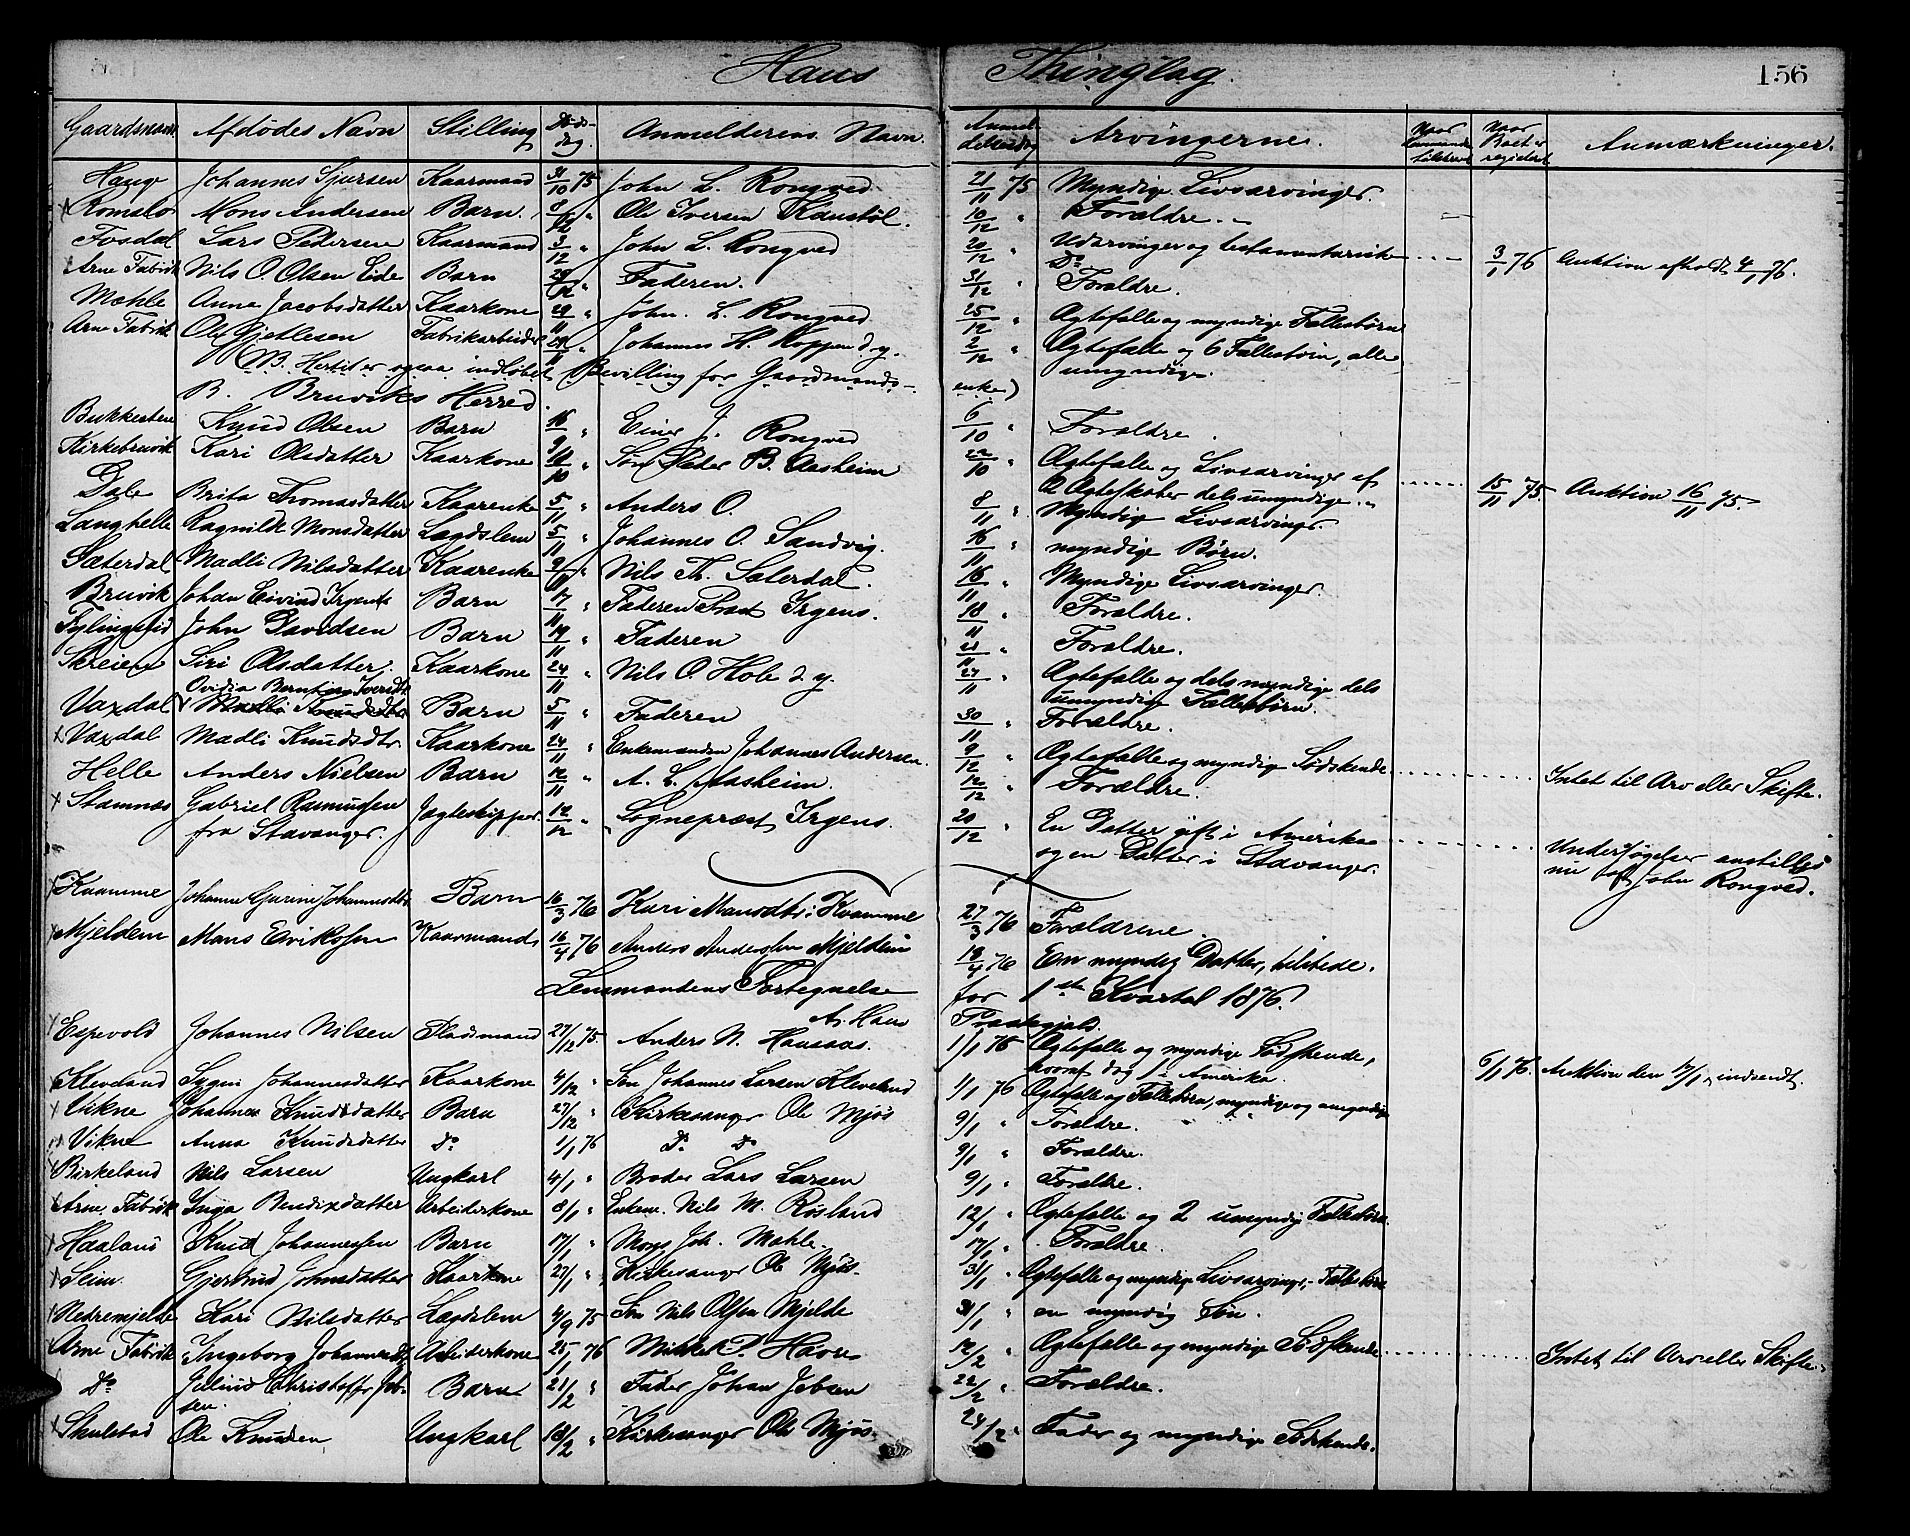 Haus Thinglag. 156
Gaardsnavn Afdødes Navn Stilling Døds-dag. Anmelderens Navn. Anmel-delsesdag Arvingerne. Naar Naar Boet er registert Anmærkninger.
Haug Johannes Sjursen Kaarmand 31/10 75 John L. Rongved 21/11 75 Myndige Livsarvinger.
x Romslo Mons Andersen Barn 8/12 " Ole Iversen 10/12 " Forældre.
Fosdal Lars Pedersen Kaarmand 3/12 " John L. Rongved 20/12 " Udarvinger og testamentariske Do 3/1 76 Auktion afholdt 4/1 76.
x Arne Fabrik Nils O. Olsen Eide Barn 29/12 " Faderen. 31/12 " Forældre.
Mæhle Anna Jacobsdatter Kaarkone 29/11 " John L. Rongved 25/12 " Ægtefælle og myndige Fællesbørn
Arne Fabrik Ole Gjetlesen Fabrikarbeider 29/11 " Johannes H. Koppen d. y. 2/12 " Ægtefælle og 6 Fællesbørn, alle
umyndige.
(NB. Hertil er ogsaa indløbet Bevilling for Gaardmands-
enke)
B. Bruviks Herred.
Bukkesten Knud Olsen Barn 16/9 " Einer J. Rongved 6/10 " Forældre.
Kirkebruvik Kari Olsdatter Kaarkone 10/10 " Søn Peder B. Aasheim 22/10 " Ægtefælle og Livsarvinger af
2 Ægteskaber dels umyndige 15/11 75 Auktion 16/11 75.
Dale Brita Thomasdatter Kaarenke 5/11 " Anders O. 8/11 " Myndige Livsarvinger.
Langhelle Ragnilde Monsdatter Lægdslem 5/11 " Johannes O. Sandvig. 16/11 " myndige Børn.
Sæterdal Madli Nilsdatter Kaarenke 9/11 " Nils Th. Sæterdal. 16/11 " Myndige Livsarvinger.
Bruvik Johan Eivind Irgens Barn 17/11 " Faderen Præst Irgens. 18/11 " Forældre.
John Davidsen Barn 19/11 " Faderen 21/11 " Forældre.
Skreien Siri Olsdatter. Kaarkone 24/11 " Nils O. Hole d. y. 27/11 " Ægtefælle og dels myndige dels
umyndige Fællesbørn.
Vaxdal Barn 5/11 " Faderen 30/11 " Forældre.
x Vaxdal Madli Knudsdtr Kaarkone 24/11 " Enkemanden Johannes Andersen. 9/12 " Ægtefælle og myndige Sødskende Intet til Arv eller Skifte.
Helle Anders Nielsen Barn 12/11 " A. L. Aasheim. 12/12 " Forældre.
x Stamnæs Gabriel Rasmussen Jagteskipper 12/12 " Sognepræst Irgens. 20/12 " En Datter gift i Amerika
fra Stavanger. og en Datter i Stavanger. Undersøgelser anstilles
nu af John Rongved.
x Kvamme Johanne Gurine Johannesdtr Barn 16/3 76 Kari Mansdtr. Kvamme 27/3 76 Forældrene.
x Mjeldem Mons Erikssen Kaarmand 16/4 76 Anders Anderssen Mjeldem 18/4 76 En myndig Datter, tilstede.
Lensmandens Fortegnelse for 1ste Kvartal 1876.
A. Haus Præstegjæld.
x Espevold Johannes Nilsen Pladsmand 27/12 75 Anders N. Hausaas. 1/1 76 Ægtefælle og myndige Sødskende,
hvoraf dog 1 i Amerika. 6/1 76. Auktion den 17/1, indsendt.
x Kleveland Sygni Johannesdatter Kaarkone 4/12 " Søn Johannes Larsen Kleveland 1/1 76 Ægtefælle og Fællesbørn, myndige og umyndige
x Vikne Johannes Knudsdatter Barn 27/12 " Kirkesanger Ole Mjøs 9/1 " Forældre.
x Vikne Anna Knudsdatter Do 1/1 76 Do Do 9/1 " Forældre.
x Birkeland Nils Larsen Ungkarl 4/1 " Broder Lars Larsen 9/1 " Forældre.
x Arne Fabrik Inga Bendixdatter Arbeiderkone 8/1 " Enkem. Nils M. Røsland 12/1 " Ægtefælle og 2 umyndige Fællesbørn.
x Haaland Knud Johannessen Barn 17/1 " Mons Joh. Mæhle 17/1 " Forældre.
x Seim Gjertrud Johnsdatter Kaarkone 27/1 " Kirkesanger Ole Mjøs. 31/1 " Ægtefælle og myndige Livsarvinger, Fællesbørn
Nedremjelde Kari Nilsdatter Lægdslem 4/9 75 Søn Nils Olsen Mjelde 31/1 " en myndig Søn.
Arne Fabrik Ingeborg Johannesdtr Arbeiderkone 25/1 76 Mikkel P. Havre 12/2 " Ægtefælle og myndige Sødskende Intet til Arv eller Skifte.
x Do Christoffer Jeb-
sen. Barn 21/2 " Fader Johan Jebsen 22/2 " Forældre.
x Skulstad Ole Knudsen Ungkarl 18/2 " Kirkesanger Ole Mjøs. 24/2 " Fader og myndige Sødskende.